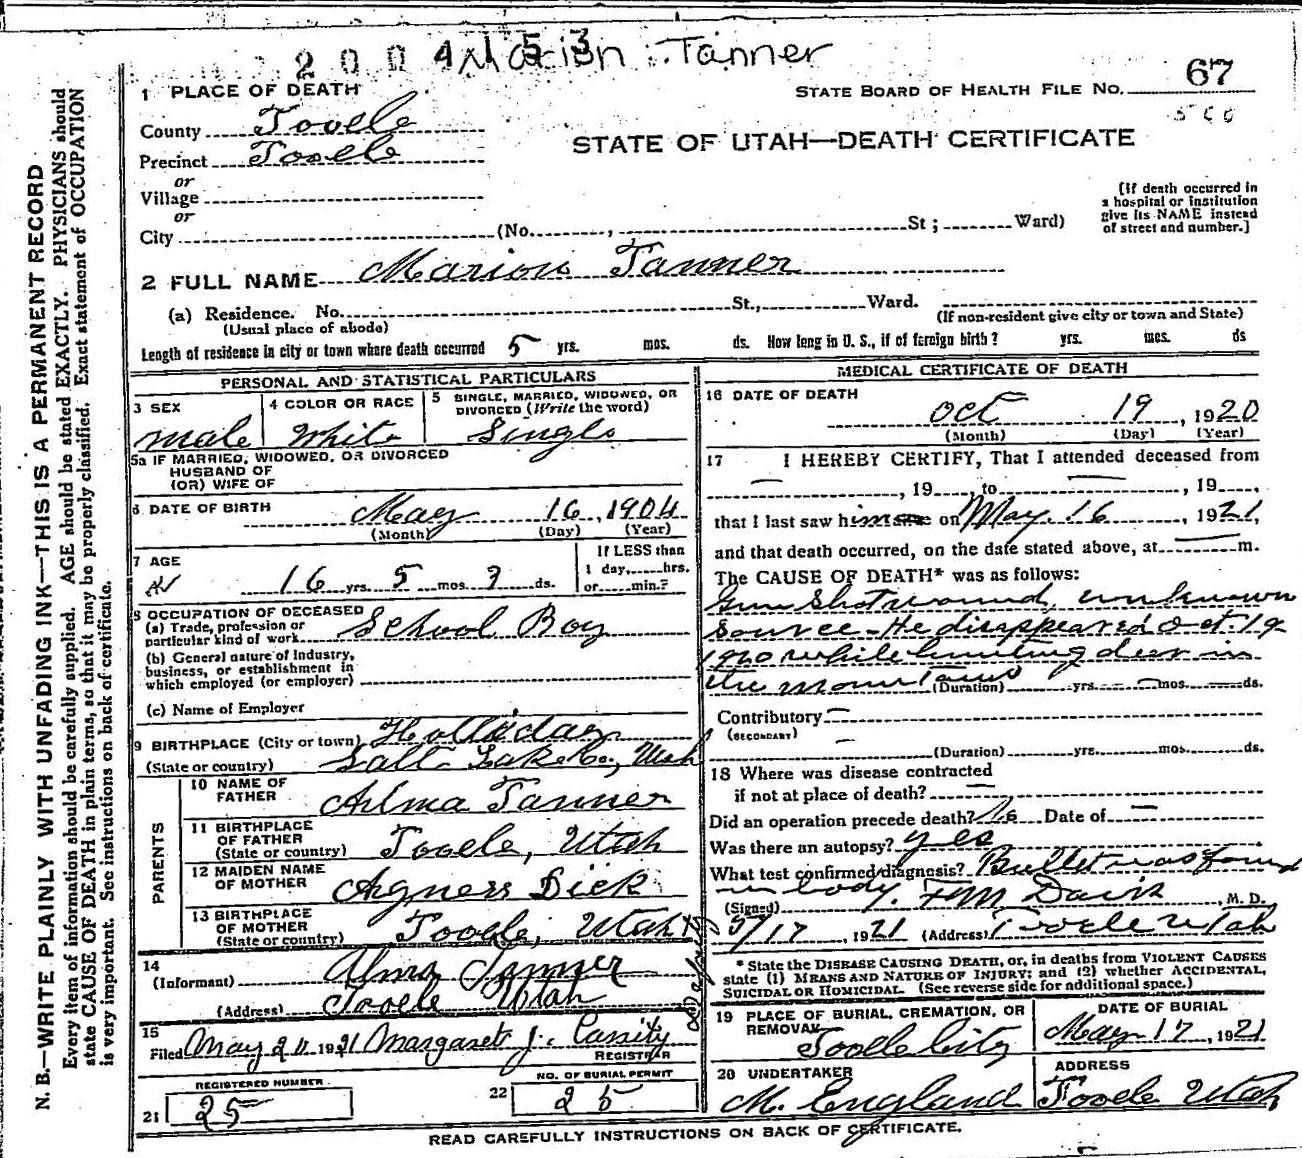 2004153 Marion Tanner
1 PLACE OF DEATH
STATE BOARD OF HEALTH FILE NO. 67
500
County Tooele
STATE OF UTAH—DEATH CERTIFICATE
Precinct Tooele
or
Village
or
City (No. , St; Ward)
(If death occurred in
a hospital or institution
give its NAME instead
of street and number.]
2 FULL NAME Marion Tanner
(a) Residence. No. St., Ward.
(Usual place of abode)
(If non-resident give city or town and State)
Length of residence in city or town where death occurred 5 yrs. mos. ds. How long in U. S., if of foreign birth? yrs. mos. ds
PERSONAL AND STATISTICAL PARTICULARS
3 SEX
male
4 COLOR OR RACE
White
5 SINGLE, MARRIED, WIDOWED, OR
DIVORCED (Write the word)
Single
5a IF MARRIED, WIDOWED, OR DIVORCED
HUSBAND OF
(OR) WIFE OF
6 DATE OF BIRTH May 16, 1904
(Month) (Day) (Year)
7 AGE
16 yrs. 5 mos. 3 ds.
If LESS than
1 day, hrs.
or min.?
8 OCCUPATION OF DECEASED
(a) Trade, profession or
particular kind of work School Boy
(b) General nature of Industry,
business, or establishment in
which employed (or employer)
(c) Name of Employer
9 BIRTHPLACE (City or town) Holladay
(State or country) Salt Lake Co., Utah
PARENTS
10 NAME OF
FATHER Alma Tanner
11 BIRTHPLACE
OF FATHER
(State or country) Tooele, Utah
12 MAIDEN NAME
OF MOTHER Agness Dick
13 BIRTHPLACE
OF MOTHER
(State or country) Tooele, Utah
14
(Informant) Alma Tanner
(Address) Tooele Utah
15
Filed May 211921 Margaret J. Cassity
REGISTRAR
REGISTERED NUMBER
21 25
NO. OF BURIAL PERMIT
22 25
MEDICAL CERTIFICATE OF DEATH
16 DATE OF DEATH
Oct 19, 1920
(Month) (Day) (Year)
17 I HEREBY CERTIFY, That I attended deceased from
— , 19 to — , 19 ,
that I last saw him on May. 16, 1921,
and that death occurred, on the date stated above, at — m.
The CAUSE OF DEATH* was as follows:
Gun Shot wound, unknown
source - He disappeared Oct. 19
1920 while hunting deer in
the mountains (Duration) yrs. — mos. — ds.
Contributory —
(SECONDARY) —
(Duration) yrs. mos. ds.
18 Where was disease contracted
if not at place of death? —
Did an operation precede death? No Date of —
Was there an autopsy? yes
What test confirmed diagnosis? Bullet was found
in body.
(Signed) F M Davis, M. D.
5/17, 1921 (Address) Tooele Utah
* State the DISEASE CAUSING DEATH, or, in deaths from VIOLENT CAUSES
state (1) MEANS AND NATURE OF INJURY; and (2) whether ACCIDENTAL,
SUICIDAL OR HOMICIDAL. (See reverse side for additional space.)
19 PLACE OF BURIAL, CREMATION, OR
REMOVAL
Tooele City
DATE OF BURIAL
May 17, 1921
20 UNDERTAKER
M. England
ADDRESS
Tooele Utah
READ CAREFULLY INSTRUCTIONS ON BACK OF CERTIFICATE.
N. B.—WRITE PLAINLY WITH UNFADING INK—THIS IS A PERMANENT RECORD
Every item of information should be carefully supplied. AGE should be stated EXACTLY. PHYSICIANS should
state CAUSE OF DEATH in plain terms, so that it may be properly classified. Exact statement of OCCUPATION
is very important. See instructions on back of certificate.